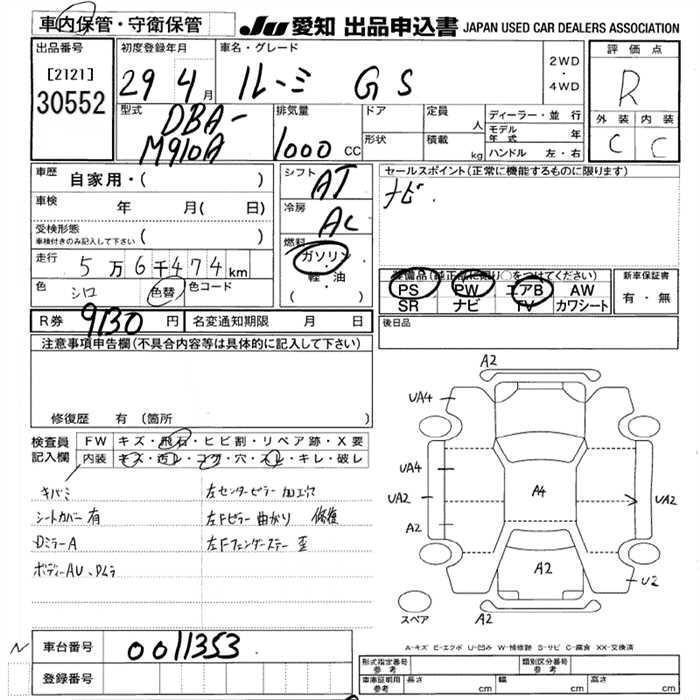 車内保管・守衛保管
JU 愛知 出品申込書 JAPAN USED CAR DEALERS ASSOCIATION
出品番号
[2121]
30552
初度登録年月
29 4月
車名・グレード
ルーミー GS
2WD
・
4WD
評価点
R
外装 内装
C C
型式
DBA-
M910A
排気量
1000 CC
ドア
形状
定員
人
積載
kg
ディーラー・並行
モデル年式 年
ハンドル 左・右
車歴
自家用・( )
車検
年 月( 日)
受検形態
車検付きのみ記入して下さい ( )
走行
5万6千474km
色
シロ
色替
色コード
シフト
AT
冷房
AC
燃料
ガソリン
・
軽・油
セールスポイント(正常に機能するものに限ります)
ナビ.
装備品(純正品に限り○をつけてください)
PS PW エアB AW
SR ナビ TV カワシート
新車保証書
有・無
R券 9130 円 名変通知期限 月 日
後日品
注意事項申告欄(不具合内容等は具体的に記入して下さい)
修復歴 有(箇所
検査員
記入欄
FW キズ・飛石・ヒビ割・リペア跡・X要
内装 キズ・汚レ・コゲ・穴・スレ・キレ・破レ
キバミ
シートカバー有
DミラーA
ボディーAU、Dムラ
左センターピラー 加工穴
左Fピラー 曲がり 修復
左Fフェンダーステー 歪
A2
UA4
UA4
UA2
A2
A4
UA2
A2
U2
A2
スペア
A-キズ E-エクボ U-凹み W-補修跡 S-サビ C-腐食 XX-交換済
N 車台番号 0011353
登録番号
形式指定番号
参考
類別区分番号
参考
車庫証明用
参考
長さ cm 幅 cm 高さ cm